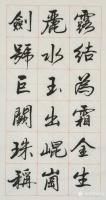 露結為霜金生
麗水玉出崐崗
劍號巨闕珠稱